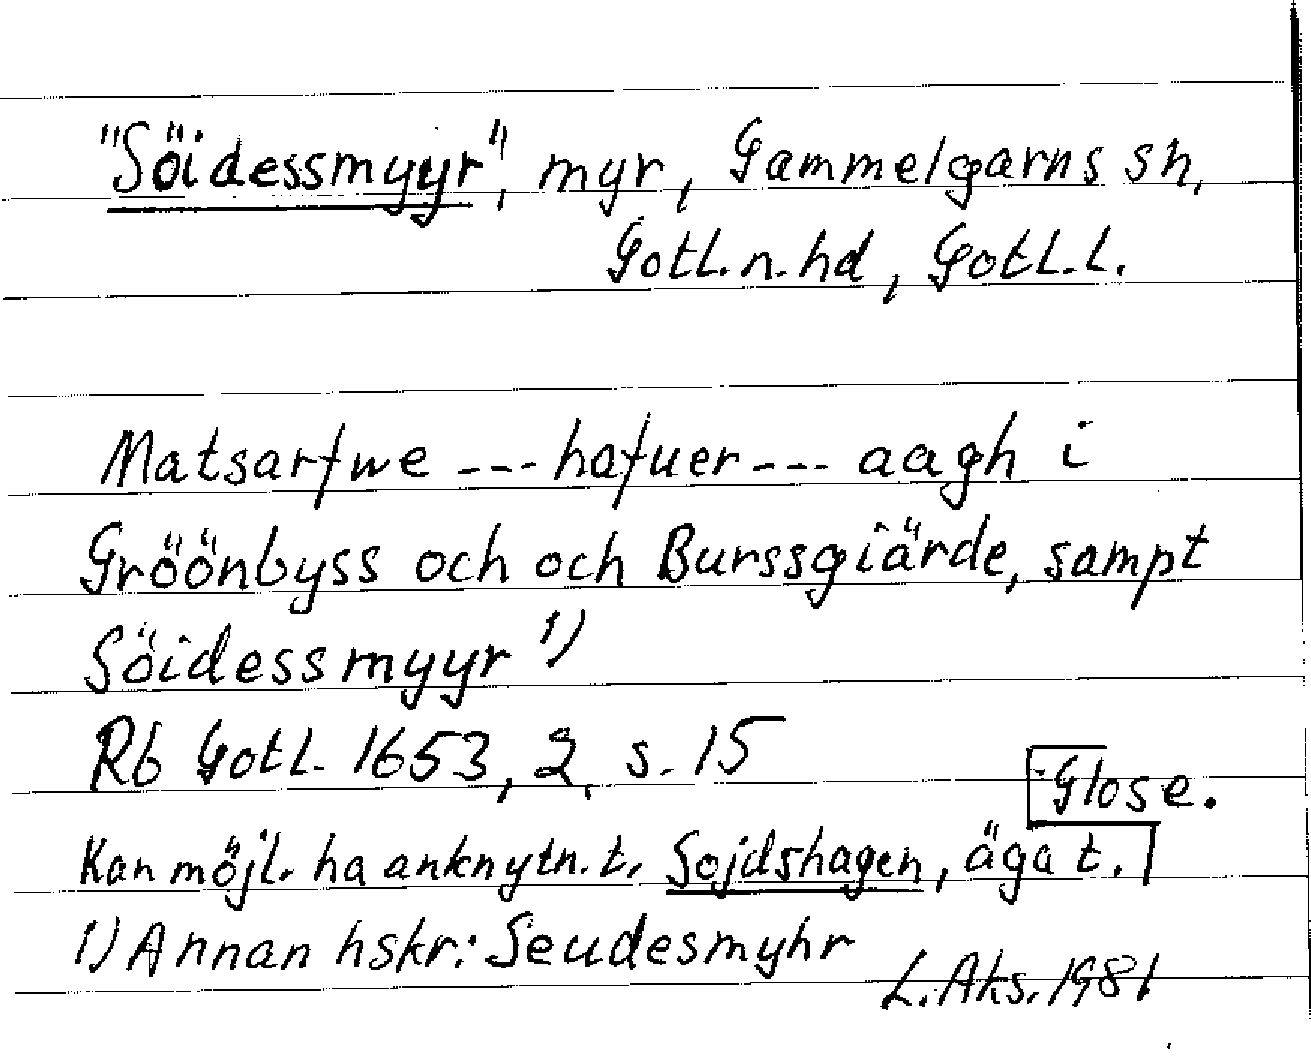 "Söidessmyyr", myr, Gammelgarns sn,
Gotl. n. hd, Gotl. l.
Matsarfwe --- hafuer --- aagh i
Gröönbyss och och Burssgiärde, sampt
Söidessmyyr 1)
Rb Gotl. 1653, 2, s. 15
Kan möjl. ha anknytn. t. Sojdshagen, äga t. Glose.
1) Annan hskr: Seudesmyhr
L. Aks. 1981